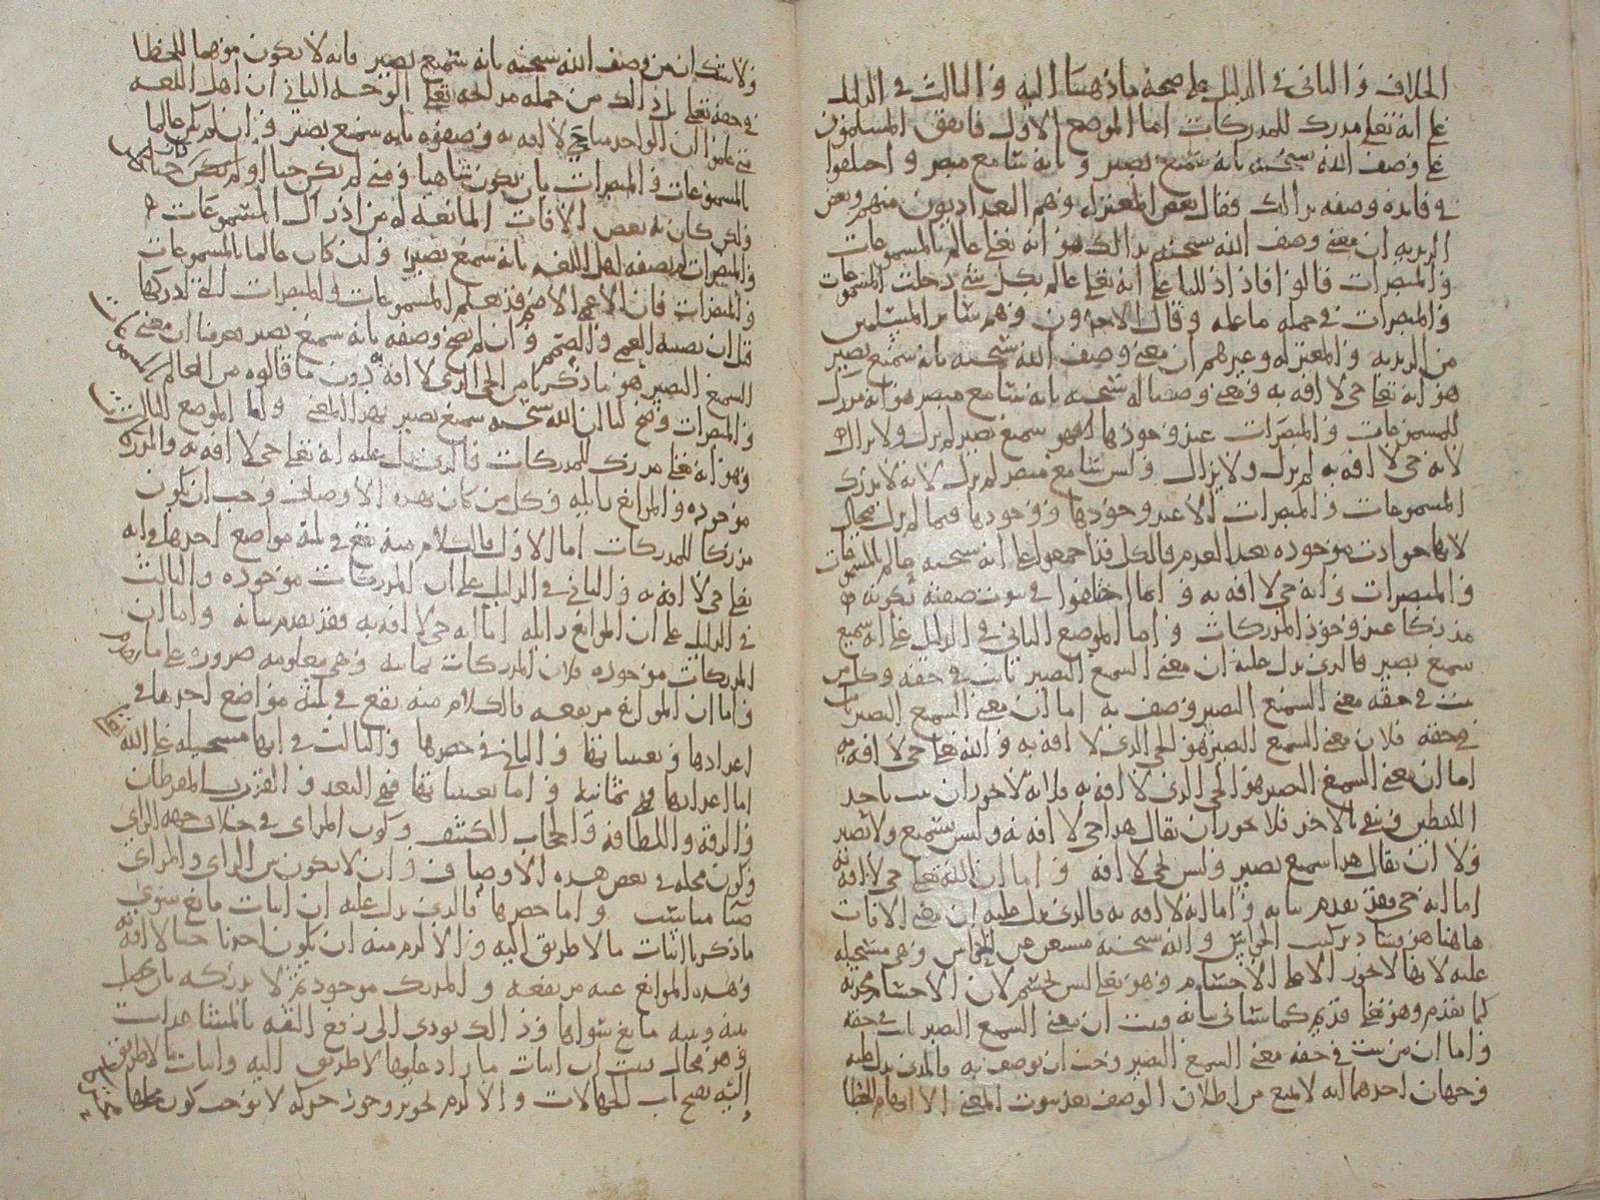 الخلاف والثاني في الدليل على صحة ما ذهبنا اليه والثالث في الدليل
على انه تعلى مدرك للمدركات اما الموضع الاول فاتفق المسلمون
على وصف الله سبحنه بانه سميع بصير وبانه سامع مبصر واختلفوا
في فائدة وصفه بذالك فقال بعض المعتزلة وهم البغداديون منهم وبعض
الزيدية ان معنى وصف الله سبحنه بذالك هو انه تعلى عالم بالمسموعات
والمبصرات قالوا فاذا دللنا على انه تعلى عالم بكل شي دخلت المسموعات
والمبصرات في جملة ما علمه وقال الاخرون وهم سائر المسلمين
من الزيدية والمعتزلة وغيرهم ان معنى وصف الله سبحنه بانه سميع بصير
هو انه تعلى حي لا افة به ومعنى وصفنا له سبحنه بانه سامع مبصر هو انه مدرك
للمسموعات والمبصرات عند وجودها فهو سميع بصير لم يزل ولا يزال
لانه حي لا افة به لم يزل ولا يزال وليس بسامع مبصر لم يزل لانه لا يدرك
المسموعات والمبصرات الا عند وجودها ووجودها فيما لم يزل محال
لانها حوادث موجودة بعد العدم فالكل قد اجمعوا على انه سبحنه عالم بالمسموعات
والمبصرات وانه حي لا افة به وانما اختلفوا في ثبوت صفته بكونه
مدركا عند وجود المدركات واما الموضع الثاني في الدليل على انه سميع
سميع بصير فالذي يدل عليه ان معنى السميع البصير ثابت في حقه وكل من
ثبت في حقه معنى السميع البصير وصف به اما ان معنى السميع البصير ثابت
في حقه فلان معنى السميع البصير هو الحي الذي لا افة به والله تعلى حي لا افة به
اما ان معنى السميع البصير هو الحي الذي لا افة به فلانه لا يجوز ان يثبت باحد
اللفظين وينفى بالاخر فلا يجوز ان يقال هذا حي لا افة به وليس بسميع ولا بصير
ولا ان يقال هذا سميع بصير وليس بحي لا افة واما ان الله تعلى حي لا افة به
اما انه حي فقد تقدم بيانه واما انه لا افة به فالذي يدل عليه ان معنى الافات
هاهنا هو فساد تركيب الحواس والله سبحنه مستغن عن الحواس وهي مستحيلة
عليه لانها لا تجوز الا على الاجسام وهو تعلى ليس بجسم لان الاجسام محدثة
كما تقدم وهو تعلى قديم كما سياتي بيانه فثبت ان معنى السميع البصير ثابت في حقه
واما ان من ثبت في حقه معنى السميع البصير وجب ان يوصف به فالذي يدل عليه
وجهان احدهما انه لا يمنع من اطلاق الوصف بعد ثبوت المعنى الا ايهام الخطا
ولا شك ان من وصف الله سبحنه بانه سميع بصير فانه لا يكون موهما للخطا
في حقه تعلى بل ذالك من جملة مدائحه تعلى الوجه الثاني ان اهل اللغة
متى علموا ان الواحد منا حي لا افة به وصفوه بانه سميع بصير وان لم يكن عالما
بالمسموعات والمبصرات بان يكون ساهيا ومتى لم يكن حيا او لم يكن حيا
ولكن كان به بعض الافات المانعة له من ادراك المسموعات
والمبصرات لم يصفه اهل اللغة بانه سميع بصير وان كان عالما بالمسموعات
والمبصرات فان الاعمى الاصم قد يعلم المسموعات والمبصرات التي ادركها
قبل ان يصيبه العمى والصمم وان لم يصح وصفه بانه سميع بصير فعرفنا ان معنى
السميع البصير هو ما ذكرنا من الحي الذي لا افة به دون ما قالوه من العالم
والمبصرات وصح لنا ان الله سبحنه سميع بصير بهذا المعنى واما الموضع الثالث
وهو انه تعلى مدرك للمدركات فالذي يدل عليه انه تعلى حي لا افة به والمدركات
موجودة والموانع زايلة وكل من كان بهذه الاوصاف وجب ان يكون
مدركا للمدركات اما الاول فالكلام منه يقع في ثلثة مواضع احدها في انه
تعلى حي لا افة به والثاني في الدليل على ان المدركات موجودة والثالث
في الدليل على ان الموانع زايلة اما انه حي لا افة به فقد تقدم بيانه واما ان
المدركات موجودة فلان المدركات ثمانية وهي معلومة ضرورة على ما
واما ان الموانع مرتفعة فالكلام منه يقع في ثلثة مواضع احدها في
اعدادها وتعيينها والثاني في حصرها والثالث في انها مستحيلة على الله
اما اعدادها فهي ثمانية واما تعيينها فهي البعد والقرب المفرطان
والرقة واللطافة والحجاب الكثيف وكون المرائ في خلاف جهة الرائي
وكون محله في بعض هذه الاوصاف وان لا يكون بين الرائي والمرائ
ضيا مناسب واما حصرها فالذي يدل عليه ان اثبات مانع سوى
ما ذكرنا اثبات ما لا طريق اليه والا لزم منه ان يكون احدنا حيا لا افة به
وهذه الموانع عنه مرتفعة والمدرك موجود ثم لا يدركه بان يحصل
بينه وبينه مانع سواها وذالك يودي الى رفع الثقة بالمشاهدات
وهو محال فثبت ان اثبات ما زاد عليها لا طريق اليه واثبات ما لا طريق
اليه يفتح باب الجهالات والا لزم تجويز وجود حركة لا توجب كون محلها